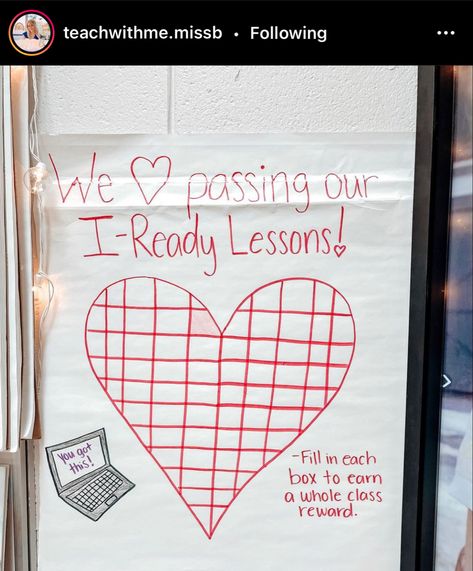 teachwithme.missb • Following
We ♡ passing our
I-Ready Lessons!
you got
this!
-Fill in each
box to earn
a whole class
reward.